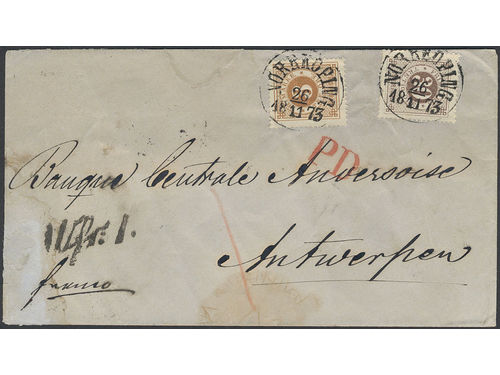 NORRKÖPING
26
18 11 73
NORRKÖPING
26
18 11 73
PD
Banque Centrale Anversoise
Antwerpen
franco